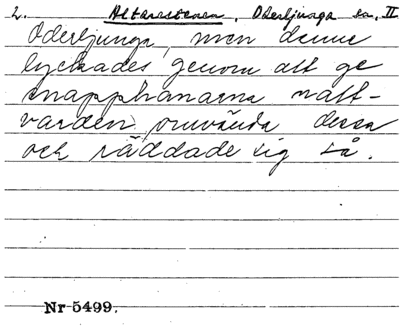 2. Altarestenen, Oderljunga sn, II
Oderljunga, men denne
lyckades genom att ge
snapphanarna natt-
varden omvända dessa
och räddade sig så.
Nr 5499.